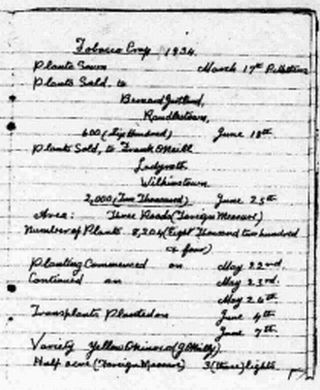 Tobacco Crop 1934.
Plants Sown March 17th
Plants Sold, to
Bernard
Randlestown,
600 (Six Hundred) June 18th.
Plants Sold, to Frank O'Neill
Ladyrath
Wilkinstown
2,000 (Two Thousand) June 25th
Area: Three Roods (Foreign Measure)
Number of Plants 8,204 (Eight Thousand two hundred
& four)
Planting Commenced on May 22nd.
Continued on May 23rd.
May 24th
Transplants Planted on June 4th
June 7th.
Variety Yellow
Half acre (Foreign Measure) 3 (three) lights